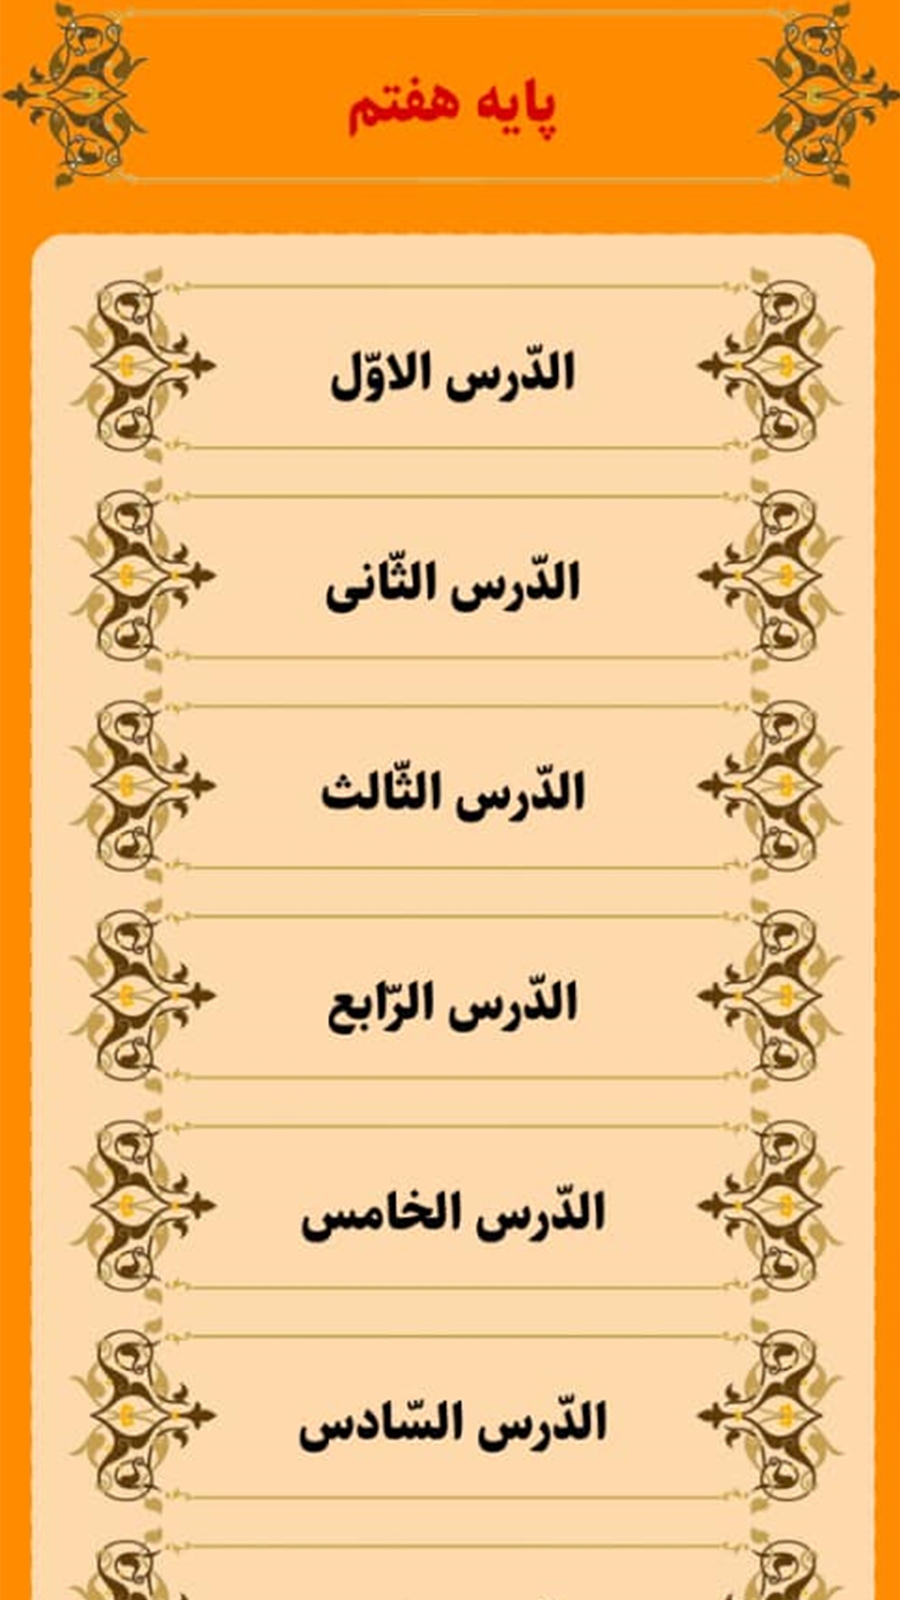 پایه هفتم
الدّرس الاوّل
الدّرس الثّانی
الدّرس الثّالث
الدّرس الرّابع
الدّرس الخامس
الدّرس السّادس